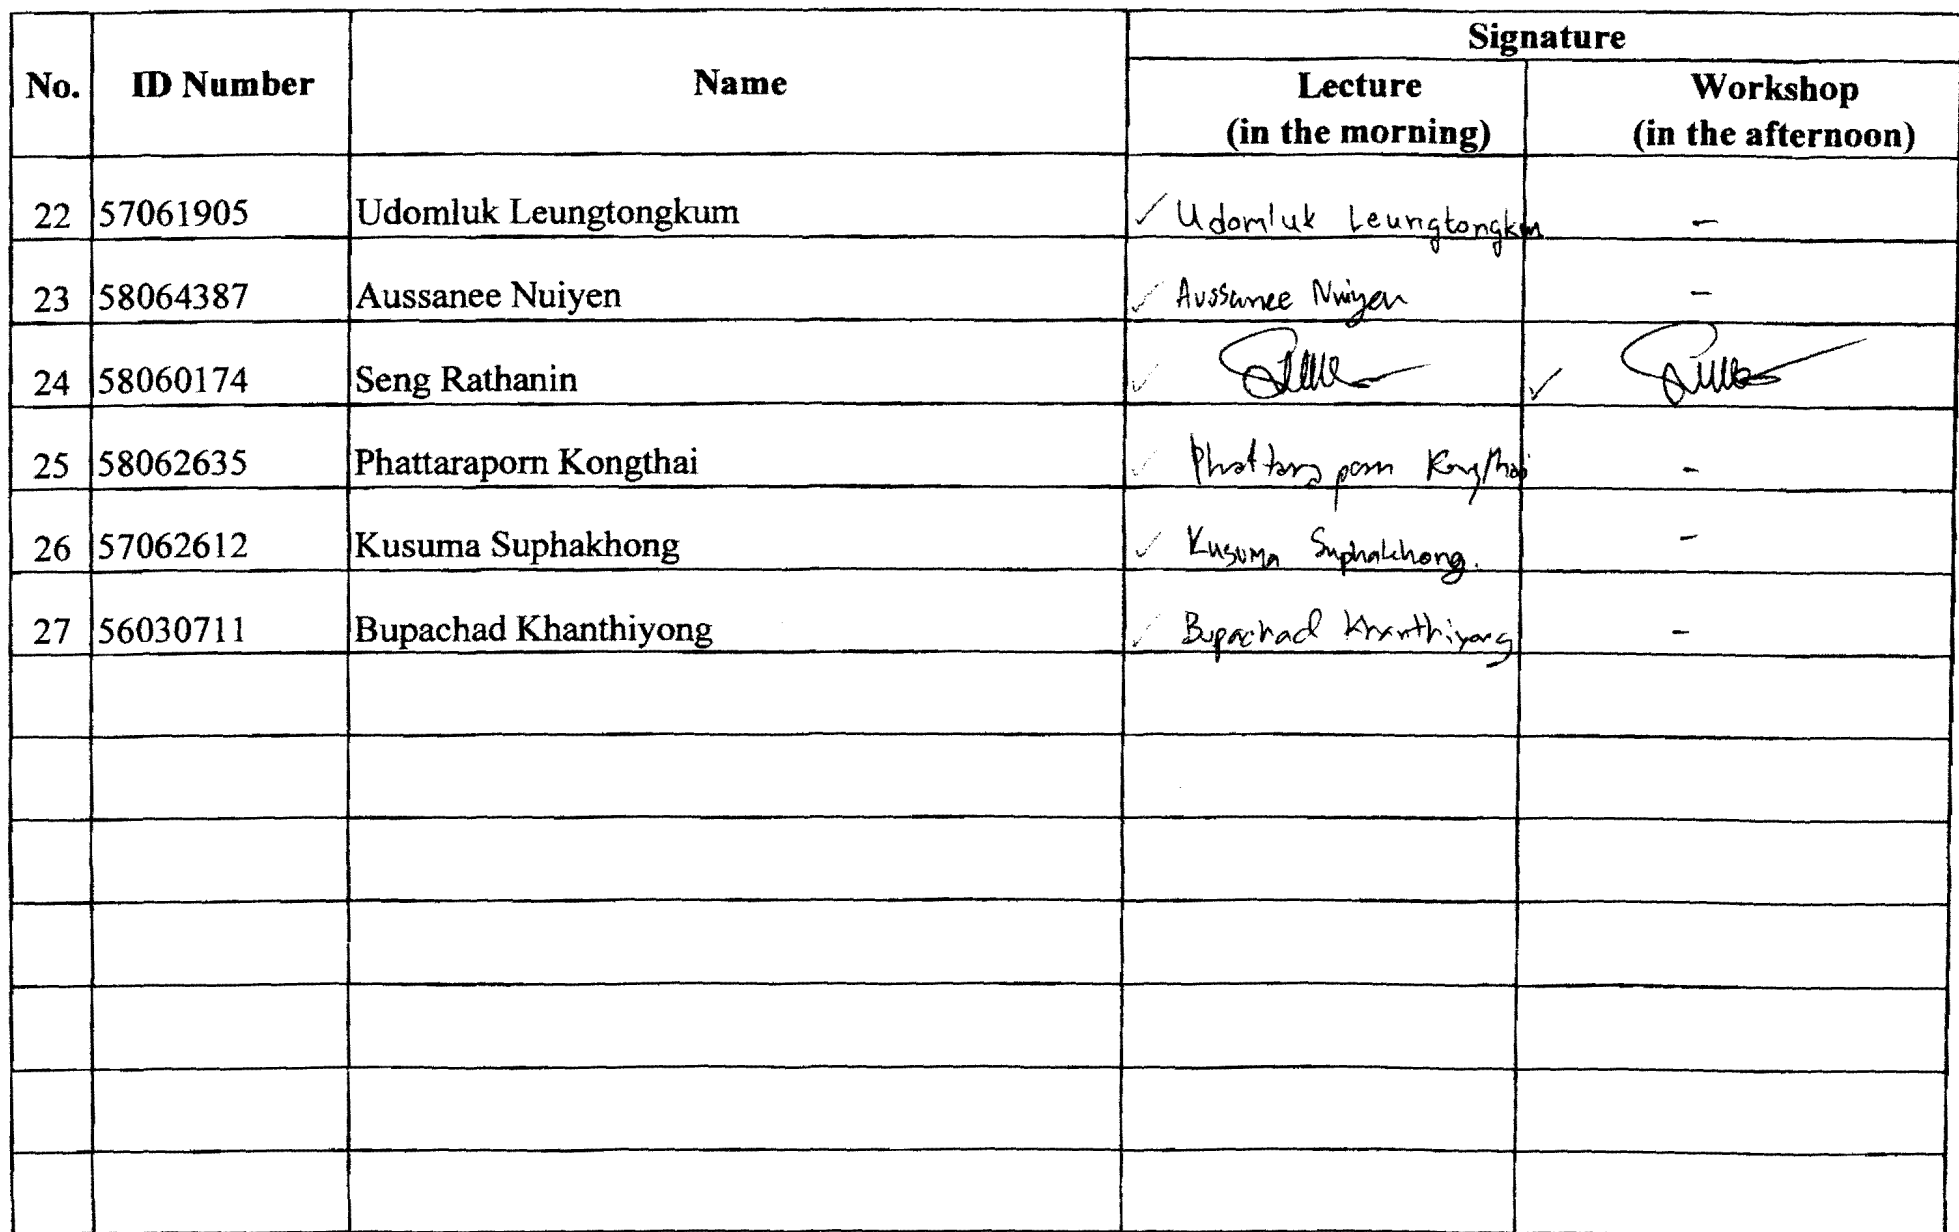 Signature
No. ID Number Name Lecture Workshop
(in the morning) (in the afternoon)
22 57061905 Udomluk Leungtongkum ✓ Udomluk Leungtongkum -
23 58064387 Aussanee Nuiyen ✓ Aussanee Nuiyen -
24 58060174 Seng Rathanin ✓ ✓
25 58062635 Phattaraporn Kongthai ✓ Phattaraporn Kongthai -
26 57062612 Kusuma Suphakhong ✓ Kusuma Suphakhong. -
27 56030711 Bupachad Khanthiyong ✓ Bupachad Khanthiyong -